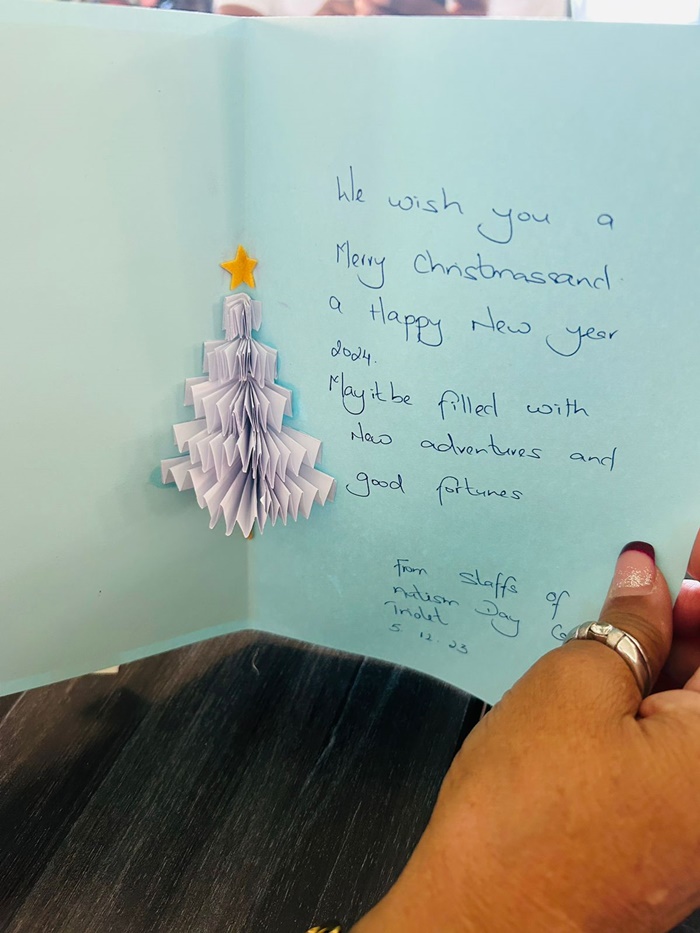 We wish you a
Merry Christmassand
a Happy New year
2024.
May it be filled with
New adventures and
good fortunes
From staffs of
Autism Day
Triolet
5. 12. 23